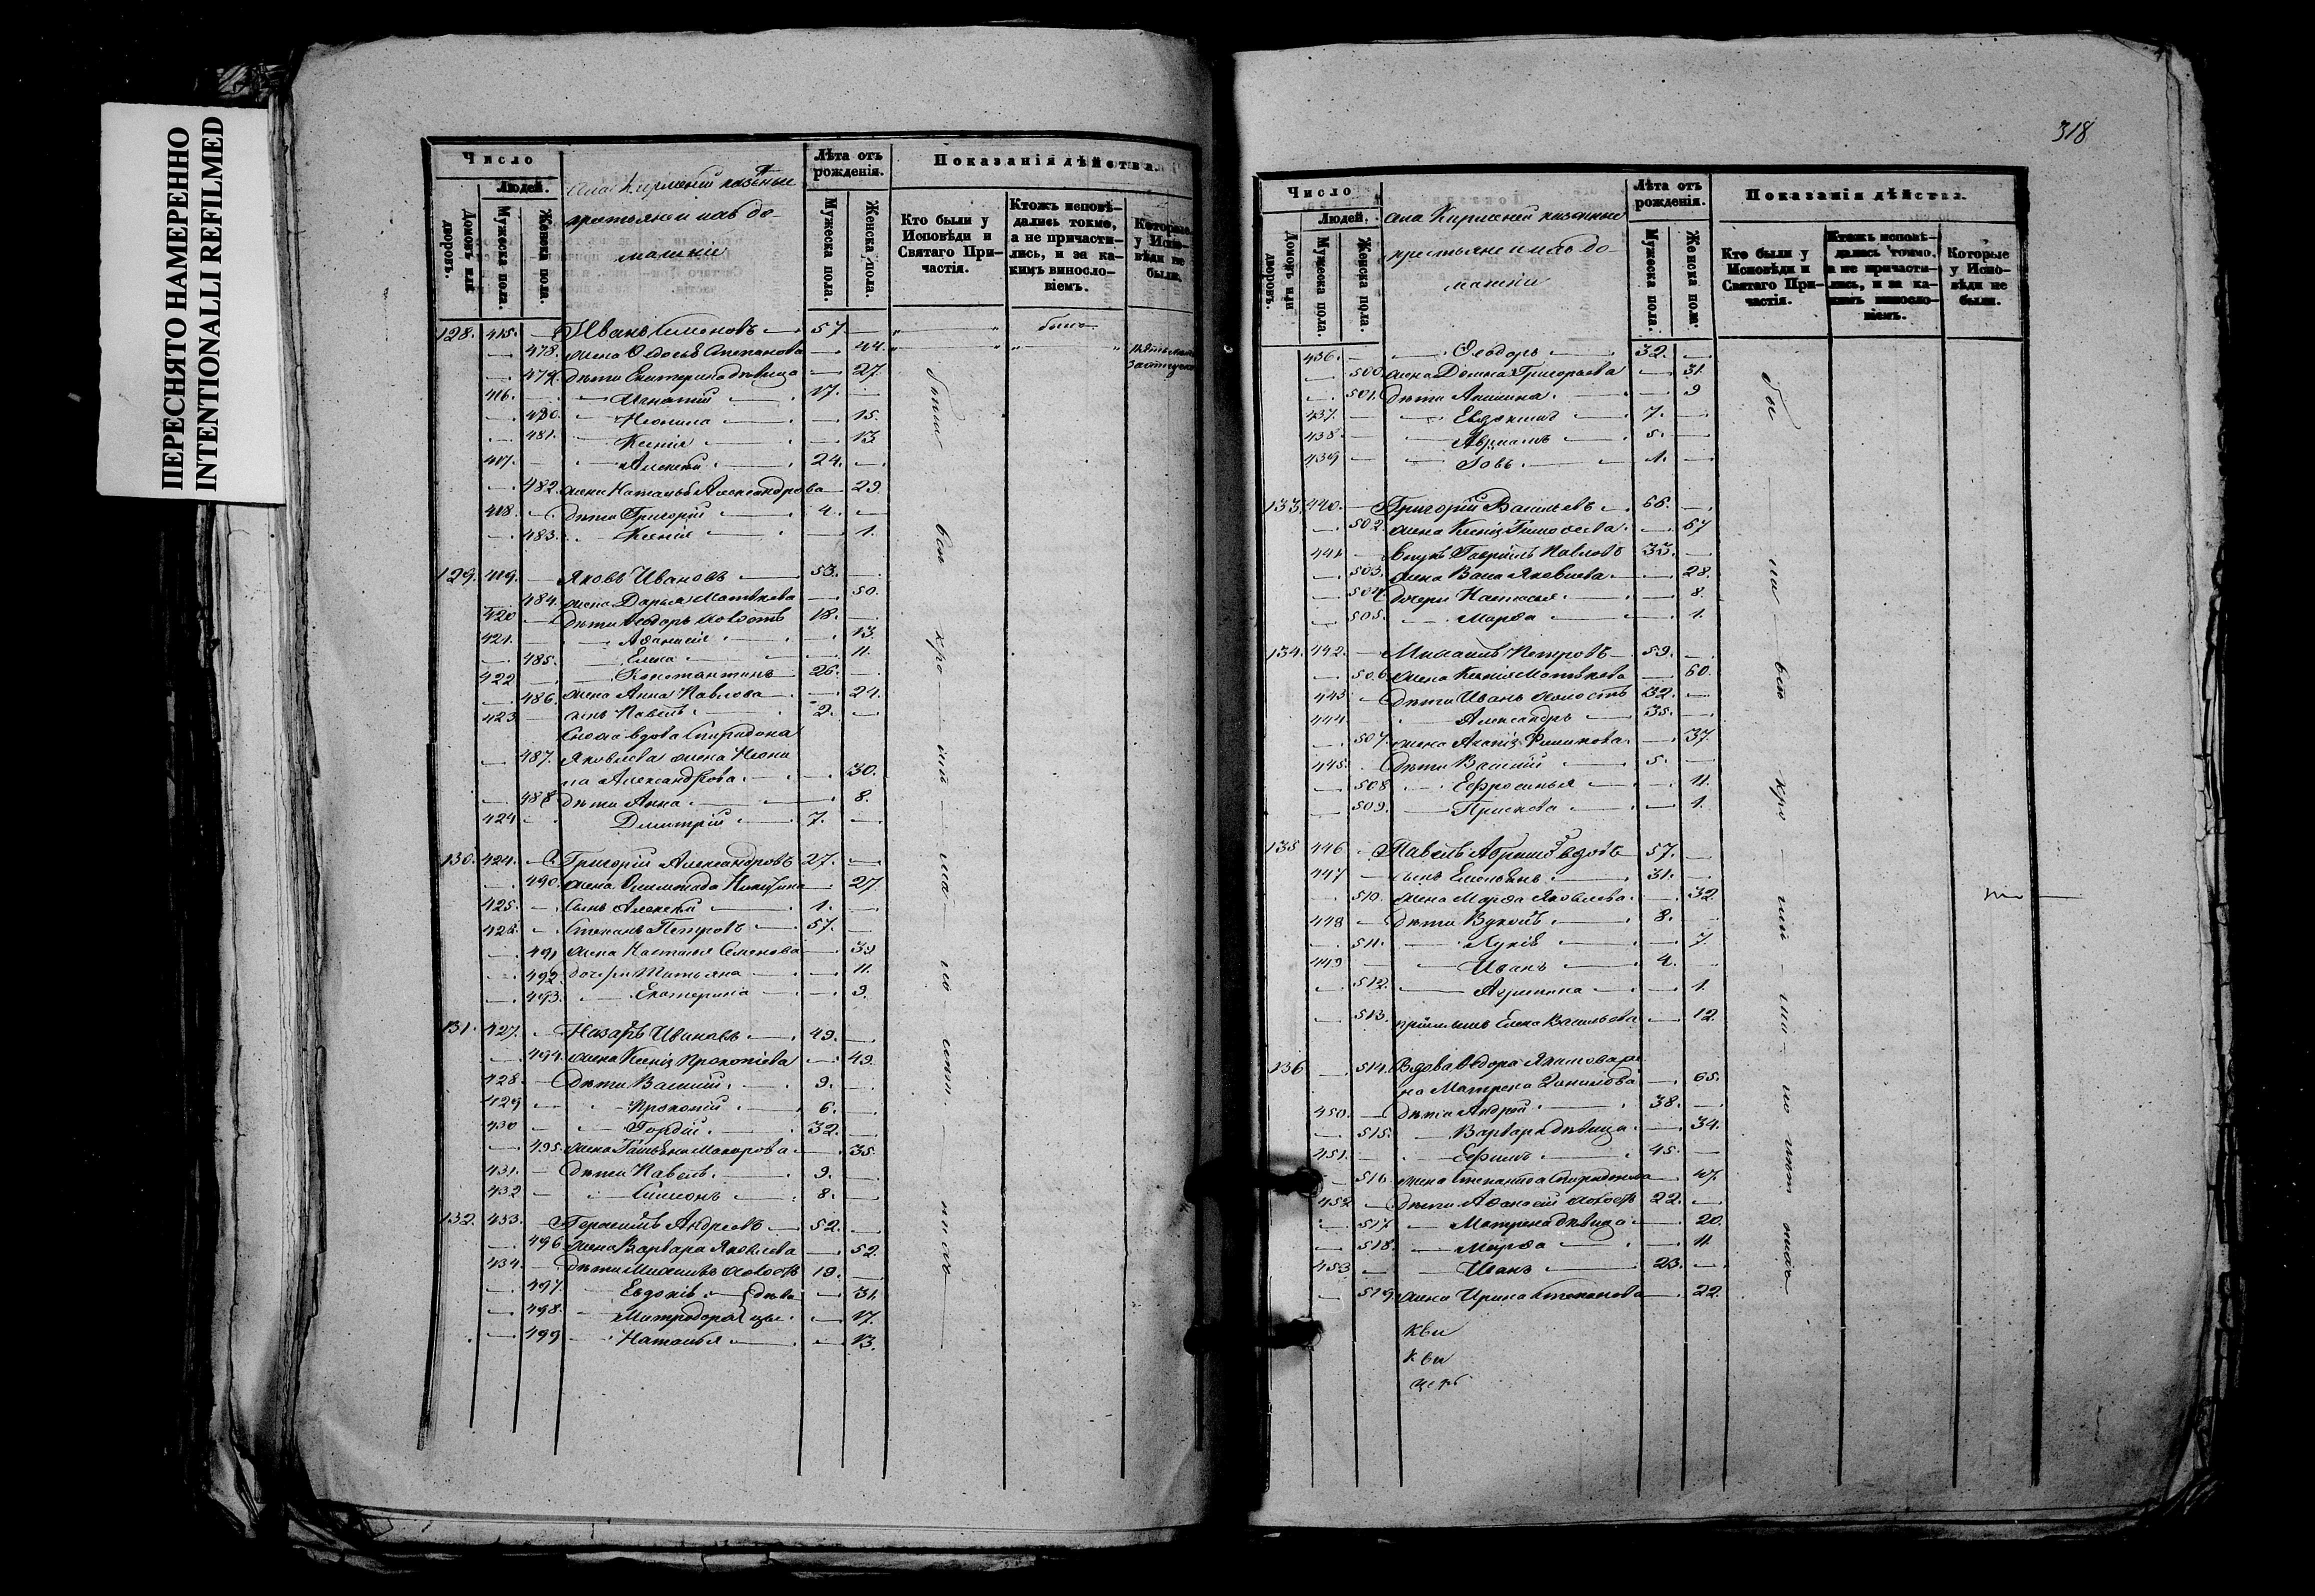 ПЕРЕСНЯТО НАМЕРЕННО
INTENTIONALLI REFILMED
Число
Людей.
Домовъ или дворовъ.
Мужеска пола.
Женска пола.
казенные
крестьяне и ихъ до-
машніе
Лѣта отъ рожденія.
Мужеска пола.
Женска пола.
Показанія дѣйства.
Кто были у Исповѣди и Святаго При-частія.
Ктожъ исповѣ-дались токмо, а не причасти-лись, и за ка-кимъ винословіемъ.
Которые у Испо-вѣди не были.
128. 415. — Иванъ Семеновъ 57. —
— 478. жена Ѳедосья Степанова — 44.
— 479. дѣти Екатерина дѣвица — 27.
416. — Игнатій 17. —
— 480. Неонила — 15.
— 481. Ксенія — 13
417. — Алексѣй 24. —
— 482. жена Наталья Александрова — 29
418. — дѣти Григорій 4. —
— 483. Ксенія — 1.
129. 419. — Яковъ Ивановъ 53. —
— 484. жена Дарья Матвѣева — 50.
420 — дѣти Ѳеодоръ холостъ 18. —
421. — Аѳанасій — 13.
— 485. Елена — 11.
422 — Константинъ 26. —
— 486. жена Анна Павлова — 24.
423 — сынъ Павелъ 2. —
Сноха вдова Спиридона
— 487. Яковлева жена Неони
ла Александрова — 30.
— 488 дѣти Анна — 8.
424 — Димитрій 7. —
130. 424. — Григорій Александровъ 27. —
— 490. жена Олимпіада Никитина — 27
425. — Сынъ Алексѣй 1. —
426. — Степанъ Петровъ 57. —
— 491 жена Настасья Семенова — 39
— 492. дочери Татьяна — 11.
— 493. Екатерина — 9.
131. 427. — Назаръ Ивановъ 49. —
— 494. жена Ксенія Прокопіева — 49.
428. — дѣти Василій 9. —
429 — Прокопій 6. —
430 — Гордій 32. —
— 495. жена Татьяна Макарова — 35
431. — дѣти Павелъ 9. —
432 — Симеонъ 8. —
132. 433. — Герасимъ Андреевъ 52. —
— 496 жена Варвара Яковлева — 52
434. — дѣти Михаилъ холостъ 19. —
— 497. Евдокія } дѣви — 31.
— 498. Митродора } цы — 17.
— 499 Наталья — 13.
318
Число
Людей.
Домовъ или дворовъ.
Мужеска пола.
Женска пола.
казенные
крестьяне и ихъ до
машніе
Лѣта отъ рожденія.
Мужеска пола.
Женска пола.
Показанія дѣйства.
Кто были у Исповѣди и Святаго При-частія.
Ктожъ исповѣ-дались токмо, а не причасти-лись, и за ка-кимъ винословіемъ.
Которые у Испо-вѣди не были.
436. — Ѳеодоръ 32. —
— 500. жена Домна Григорьева — 31.
— 501. дѣти Акилина — 9
437. — Евдокимъ 7. —
438 — Авраамъ 5. —
439 — Іовъ 1. —
133. 440. — Григорій Васильевъ 66. —
— 502. жена Ксенія Тимоѳеева — 67
441 — внукъ Гавріилъ Павловъ 33. —
— 503. жена Васса Яковлева — 28.
— 504 дочери Настасья — 8.
— 505. Марѳа — 1.
134. 442. — Михаилъ Петровъ 59. —
— 506 жена Ксенія Матвѣева — 60.
443 — дѣти Иванъ холостъ 32. —
444. — Александръ 35. —
— 507. жена Агапія Филипова — 37
445. — дѣти Василій 5. —
— 508 Ефросинья — 11.
— 509. Прасковья — 1.
135 446 — Павелъ вдовъ 57. —
447 — сынъ Емельянъ 31. —
— 510. жена Марѳа Яковлева — 32
448 — дѣти Вуколъ 8. —
— 511. Лукія — 7.
449 — Иванъ 4. —
— 512. Агрипина — 1.
— 513. пріемышъ Елена Васильева — 12.
136 — 514. Вдова Ѳедора
на Матрена Данилова — 65.
450. — дѣти Андрей 38. —
— 515. Варвара дѣвица — 34.
451. — Ефимъ 45. —
— 516 жена Степанида Спиридонова — 47.
452 — дѣти Аѳанасій холостъ 22. —
— 517 Матрена дѣвица — 20.
— 518. Марѳа — 11.
453 — Иванъ 23. —
— 519 жена Ирина Степанова — 22.